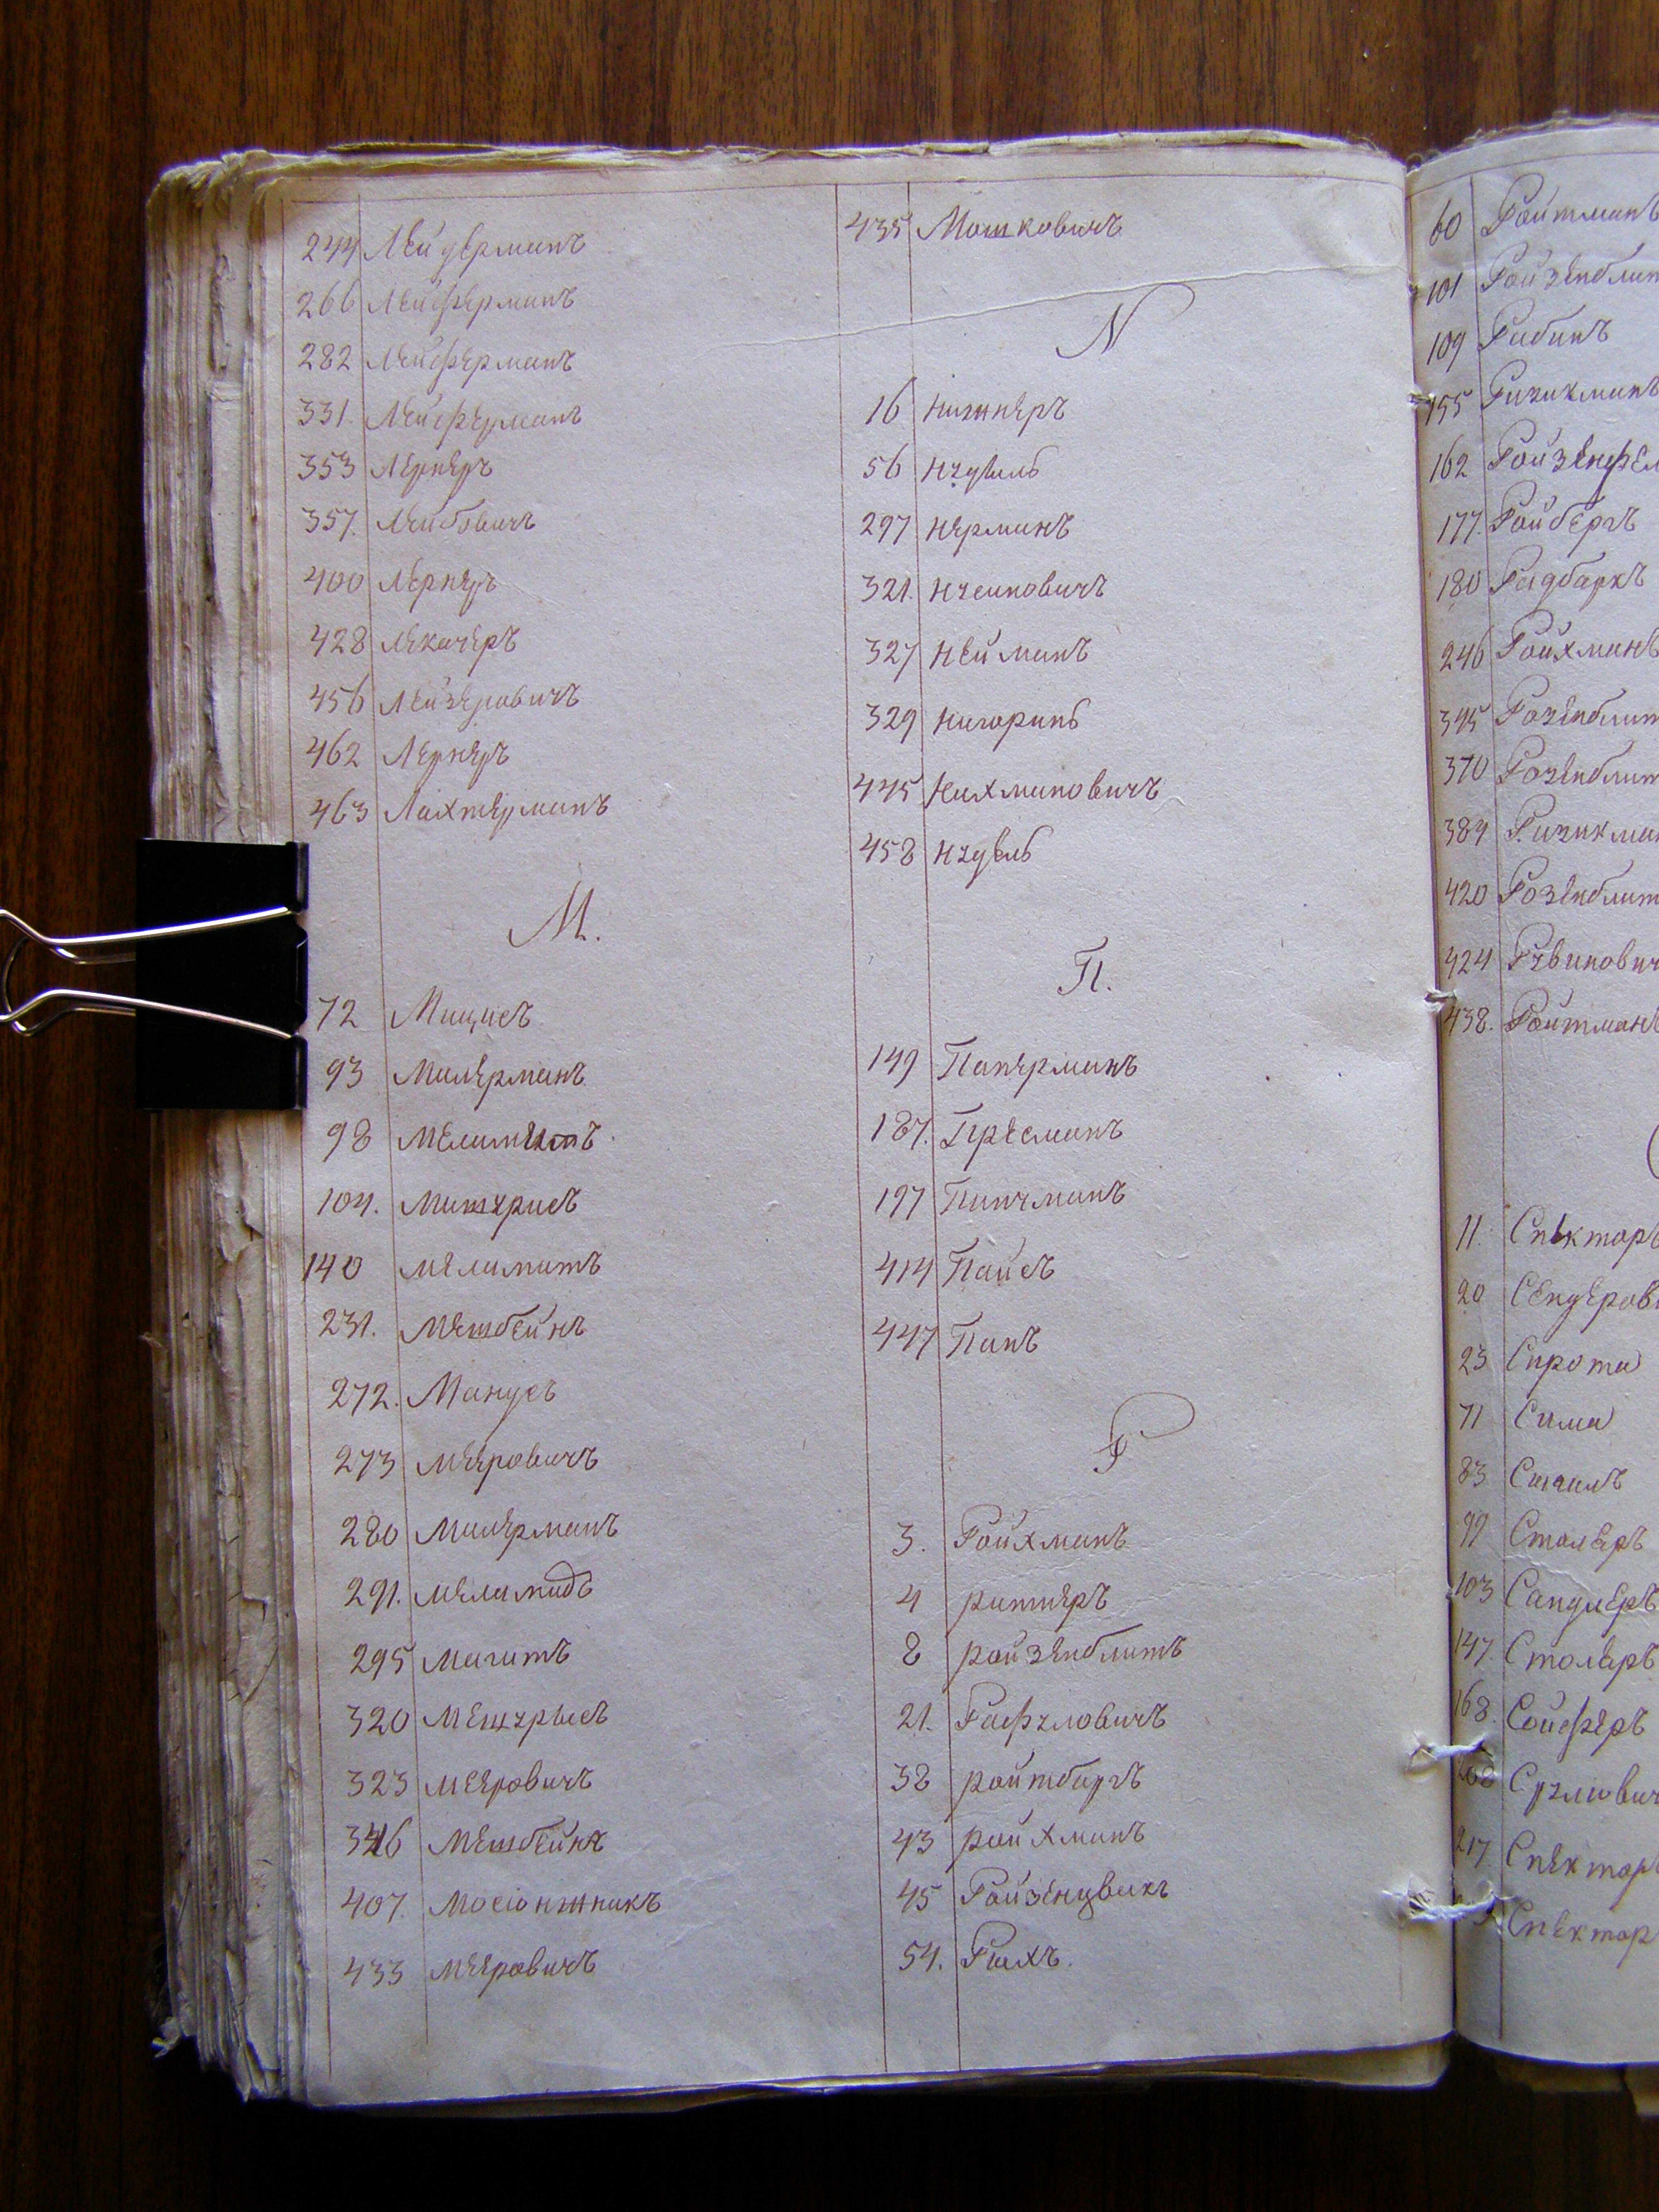 244 Лейдерманъ
266 Лейферманъ
282 Лейферманъ
331. Лейферманъ
353 Лернеръ
357. Лейбовичъ
400 Лернеръ
428 Лекачеръ
456 Лейзеровичъ
462 Лернеръ
463 Лахтерманъ
М.
72 Мациевъ
93 Милерманъ
98
104. Машурисъ
140 Меламатъ
231. Мешбейнъ
272. Манусъ
273 Мееровичъ
280 Милерманъ
291. Меламидъ
295 Магитъ
320
323 Мееровичъ
346 Мешбейнъ
407. Мосіонжникъ
433 Мееровичъ
435 Мошковичъ
N
16
56 Нудель
297 Нерманъ
321.
327 Нейманъ
329
445 Нахмановичъ
458 Нудель
П.
149 Паперманъ
187. Пресманъ
197 Пинчманъ
414 Пайсъ
447 Папъ
Р
3. Ройхманъ
4 Ратнеръ
8 Ройзенблитъ
21. Рафуловичъ
38 Ройтбаргъ
43 Ройхманъ
45 Ройзенцвикъ
54. Рыхъ.
60 Ройтманъ
101 Ройзенблит
109 Рабинъ
155
162 Ройзенфел
177. Ройбергъ
180 Радбаркъ
246 Ройхманъ
345 Розенблит
370 Розенблит
389
420 Розенблит
424 Рувинович
438. Ройтманъ
11. Спекторъ
20 Сендеров
23 Сирота
71 Сима
83
99 Столеръ
103 Сандлеръ
147. Столяръ
168. Сойферъ
208 Срулович
217. Спектор
Спектор